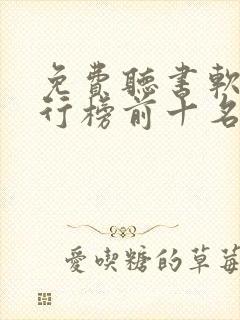 免費聽書軟
行榜前十名
愛喫糖的草莓